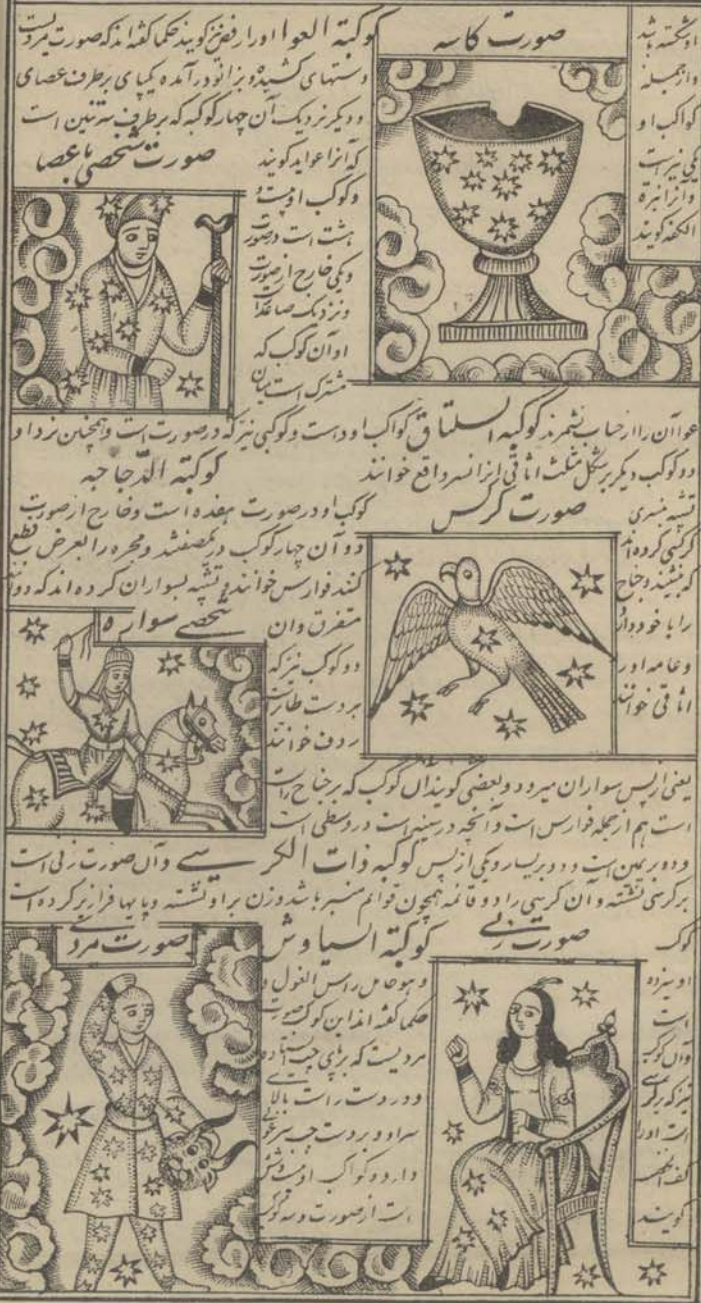 صورت کاسه
او شکسته باشد
و از جمله
کواکب او
یکی نیر است
و آنرا نیره
الکفه گویند
کوکبة العوا او را رفص نیز گویند حکما گفته‌اند که صورت مردیست
دستهای کشیده و بزانو در آمده یکپای بر طرف عصای
و دیگر نزدیک آن چهار کوکبه که بر طرف سر تنین است
که آنرا عواید گویند
صورت شخصی با عصا
و کوکب او بیست و
هشت است در صورت
و یکی خارج از صورت
و نزدیک صاعد است
او آن کوکب که
مشترک است میان
عوا آن را از حساب نشمرند کوکبة السلتاق کواکب او ده است و کوکبی نیز که در صورت است و همچنین نزد او
دو کوکب دیگر بر شکل مثلث اثافی آنرا نسر واقع خوانند
صورت کرکس
تشبیه بنسری
کرکسی کرده‌اند
که بنشیند و جناح
را با خود دارد
و عامه او را
اثافی خوانند
کوکبة الدجاجه
کوکب او در صورت هفده است و خارج از صورت
دو آن چهار کوکب در یکصفند و مجره را بعرض قطع
کنند فوارس خوانند و تشبیه بسواران کرده‌اند که دو
متفرق و آن
شخصی سواره
دو کوکب نیز که
بر دست طائر
ردف خوانند
یعنی از پس سواران میرود و بعضی گویند آن کوکب که بر جناح راست
است هم از جمله فوارس است و آنچه در سینه است در وسطی است
و دو بر یمین است و دو بر یسار و یکی از پس کوکبة ذات الکرسی و آن صورت زنی است
بر کرسی نشسته و آن کرسی را دو قائمه همچون قوائم منبر باشد و زن بر او نشسته و پایها فراز بر کرده است
صورت زنی
کوکب
او سیزده
است
و آن کوکب
نیز که بر کرسی
است او را
کف الخضیب
گویند
کوکبة السیاوش
صورت مردی
و هو حامل راس الغول و
حکما گفته‌اند این کوکب صورت
مردیست که بر پای چپ ایستاده
و در دست راست بالای
سر او و بر دست چپ سر غولی
دارد و کواکب او بیست و شش
است از صورت و سه کوکب